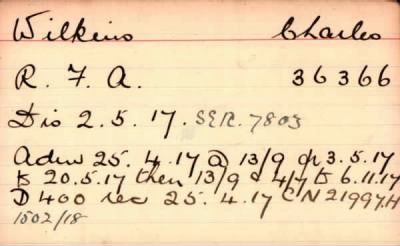 Wilkins Charles
R. F. A. 36366
Dis 2. 5. 17. SER. 7803
Adm 25. 4. 17 @ 13/9 fr 3. 5. 17
to 20.5.17 then 13/9 @ 4/7 to 6.11.17
D 400 rec 25. 4. 17 CN 21997.H
1502/18